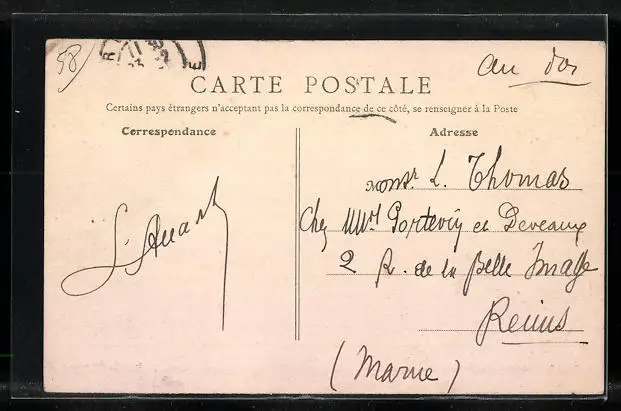 58
au dos
CARTE POSTALE
Certains pays étrangers n'acceptant pas la correspondance de ce côté, se renseigner à la Poste
Correspondance
Adresse
Monsr L. Thomas
Chez MMrs Portevin et Deveaux
2 R. de la Belle Image
Reims
(Marne)